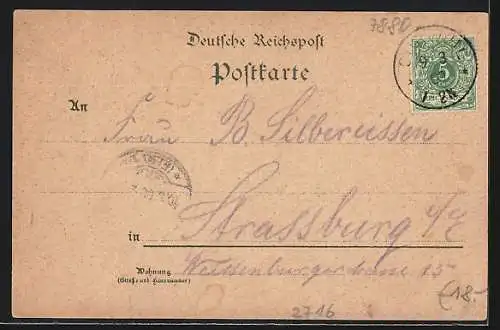 7880
Deutsche Reichspost
Postkarte
9 3
5
1-2N
An
Frau B. Silbereissen
in Strassburg i/E
Wohnung
(Straße und Hausnummer)
Weissenburgerstrasse 15
2716
€18.-